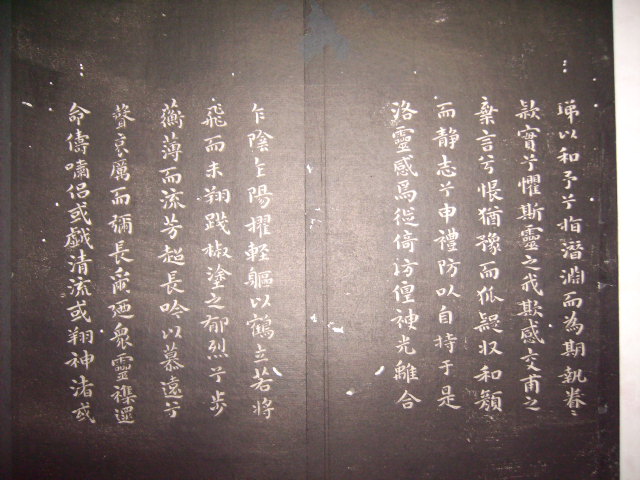 琑以和予兮指潛淵而為期執眷〻
款實兮懼斯靈之我欺感交甫之
棄言兮悵猶豫而狐疑収和顏
而静志兮申禮防以自持于是
洛靈感焉徙倚彷徨神光離合
乍陰乍陽擢軽軀以鶴立若將
飛而未翔踐椒塗之郁烈兮步
蘅薄而流芳超長吟以慕遠兮
聲哀厲而彌長爾廼衆靈襍遝
命儔嘯侣或戲清流或翔神渚或